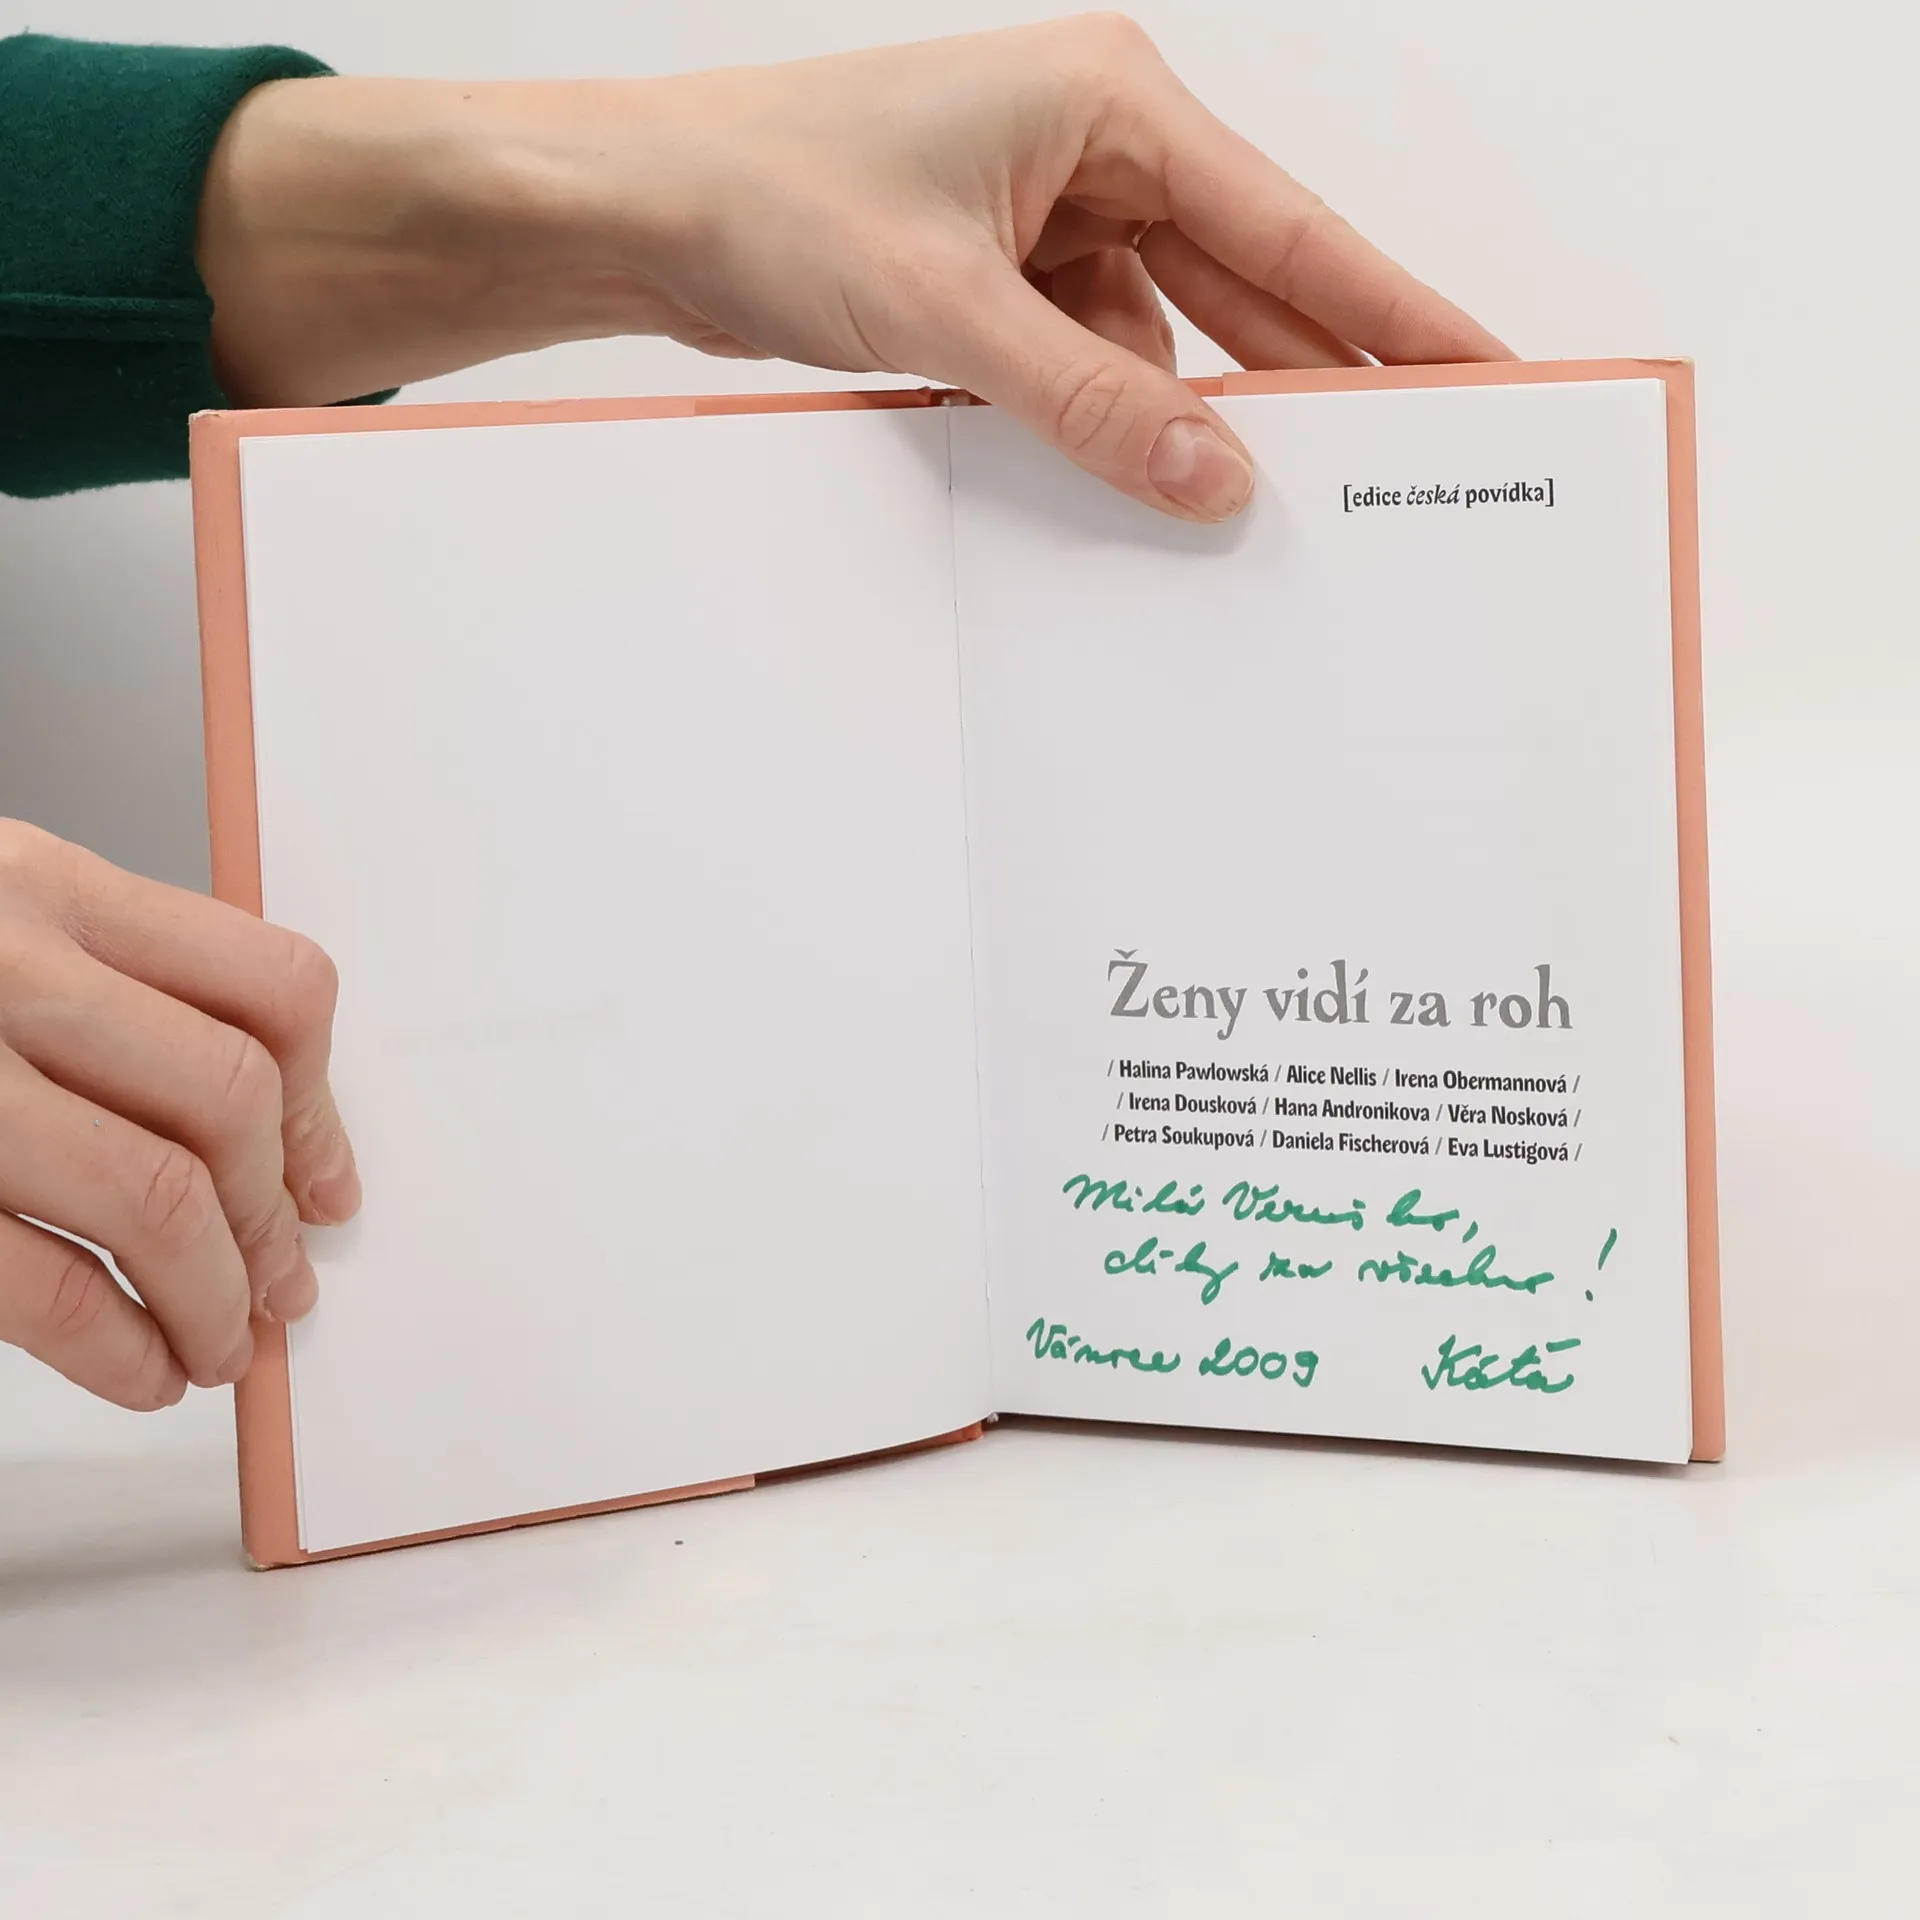 [edice česká povídka]
Ženy vidí za roh
/ Halina Pawlowská / Alice Nellis / Irena Obermannová /
/ Irena Dousková / Hana Andronikova / Věra Nosková /
/ Petra Soukupová / Daniela Fischerová / Eva Lustigová /
Milá Veruško,
díky za všechno!
Vánoce 2009 Káťa